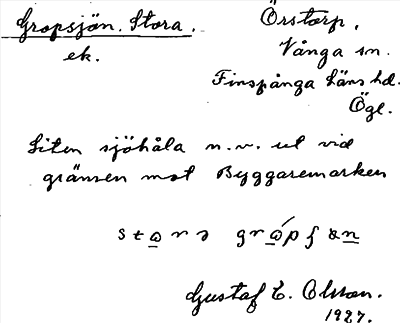 Gropsjön. Stora.
Örstorp.
ek.
Vånga sn.
Finspånga läns hd.
Ögl.
Liten sjöhåla n.v. ut vid
gränsen mot Byggaremarken
Gustaf E. Olsson.
1927.